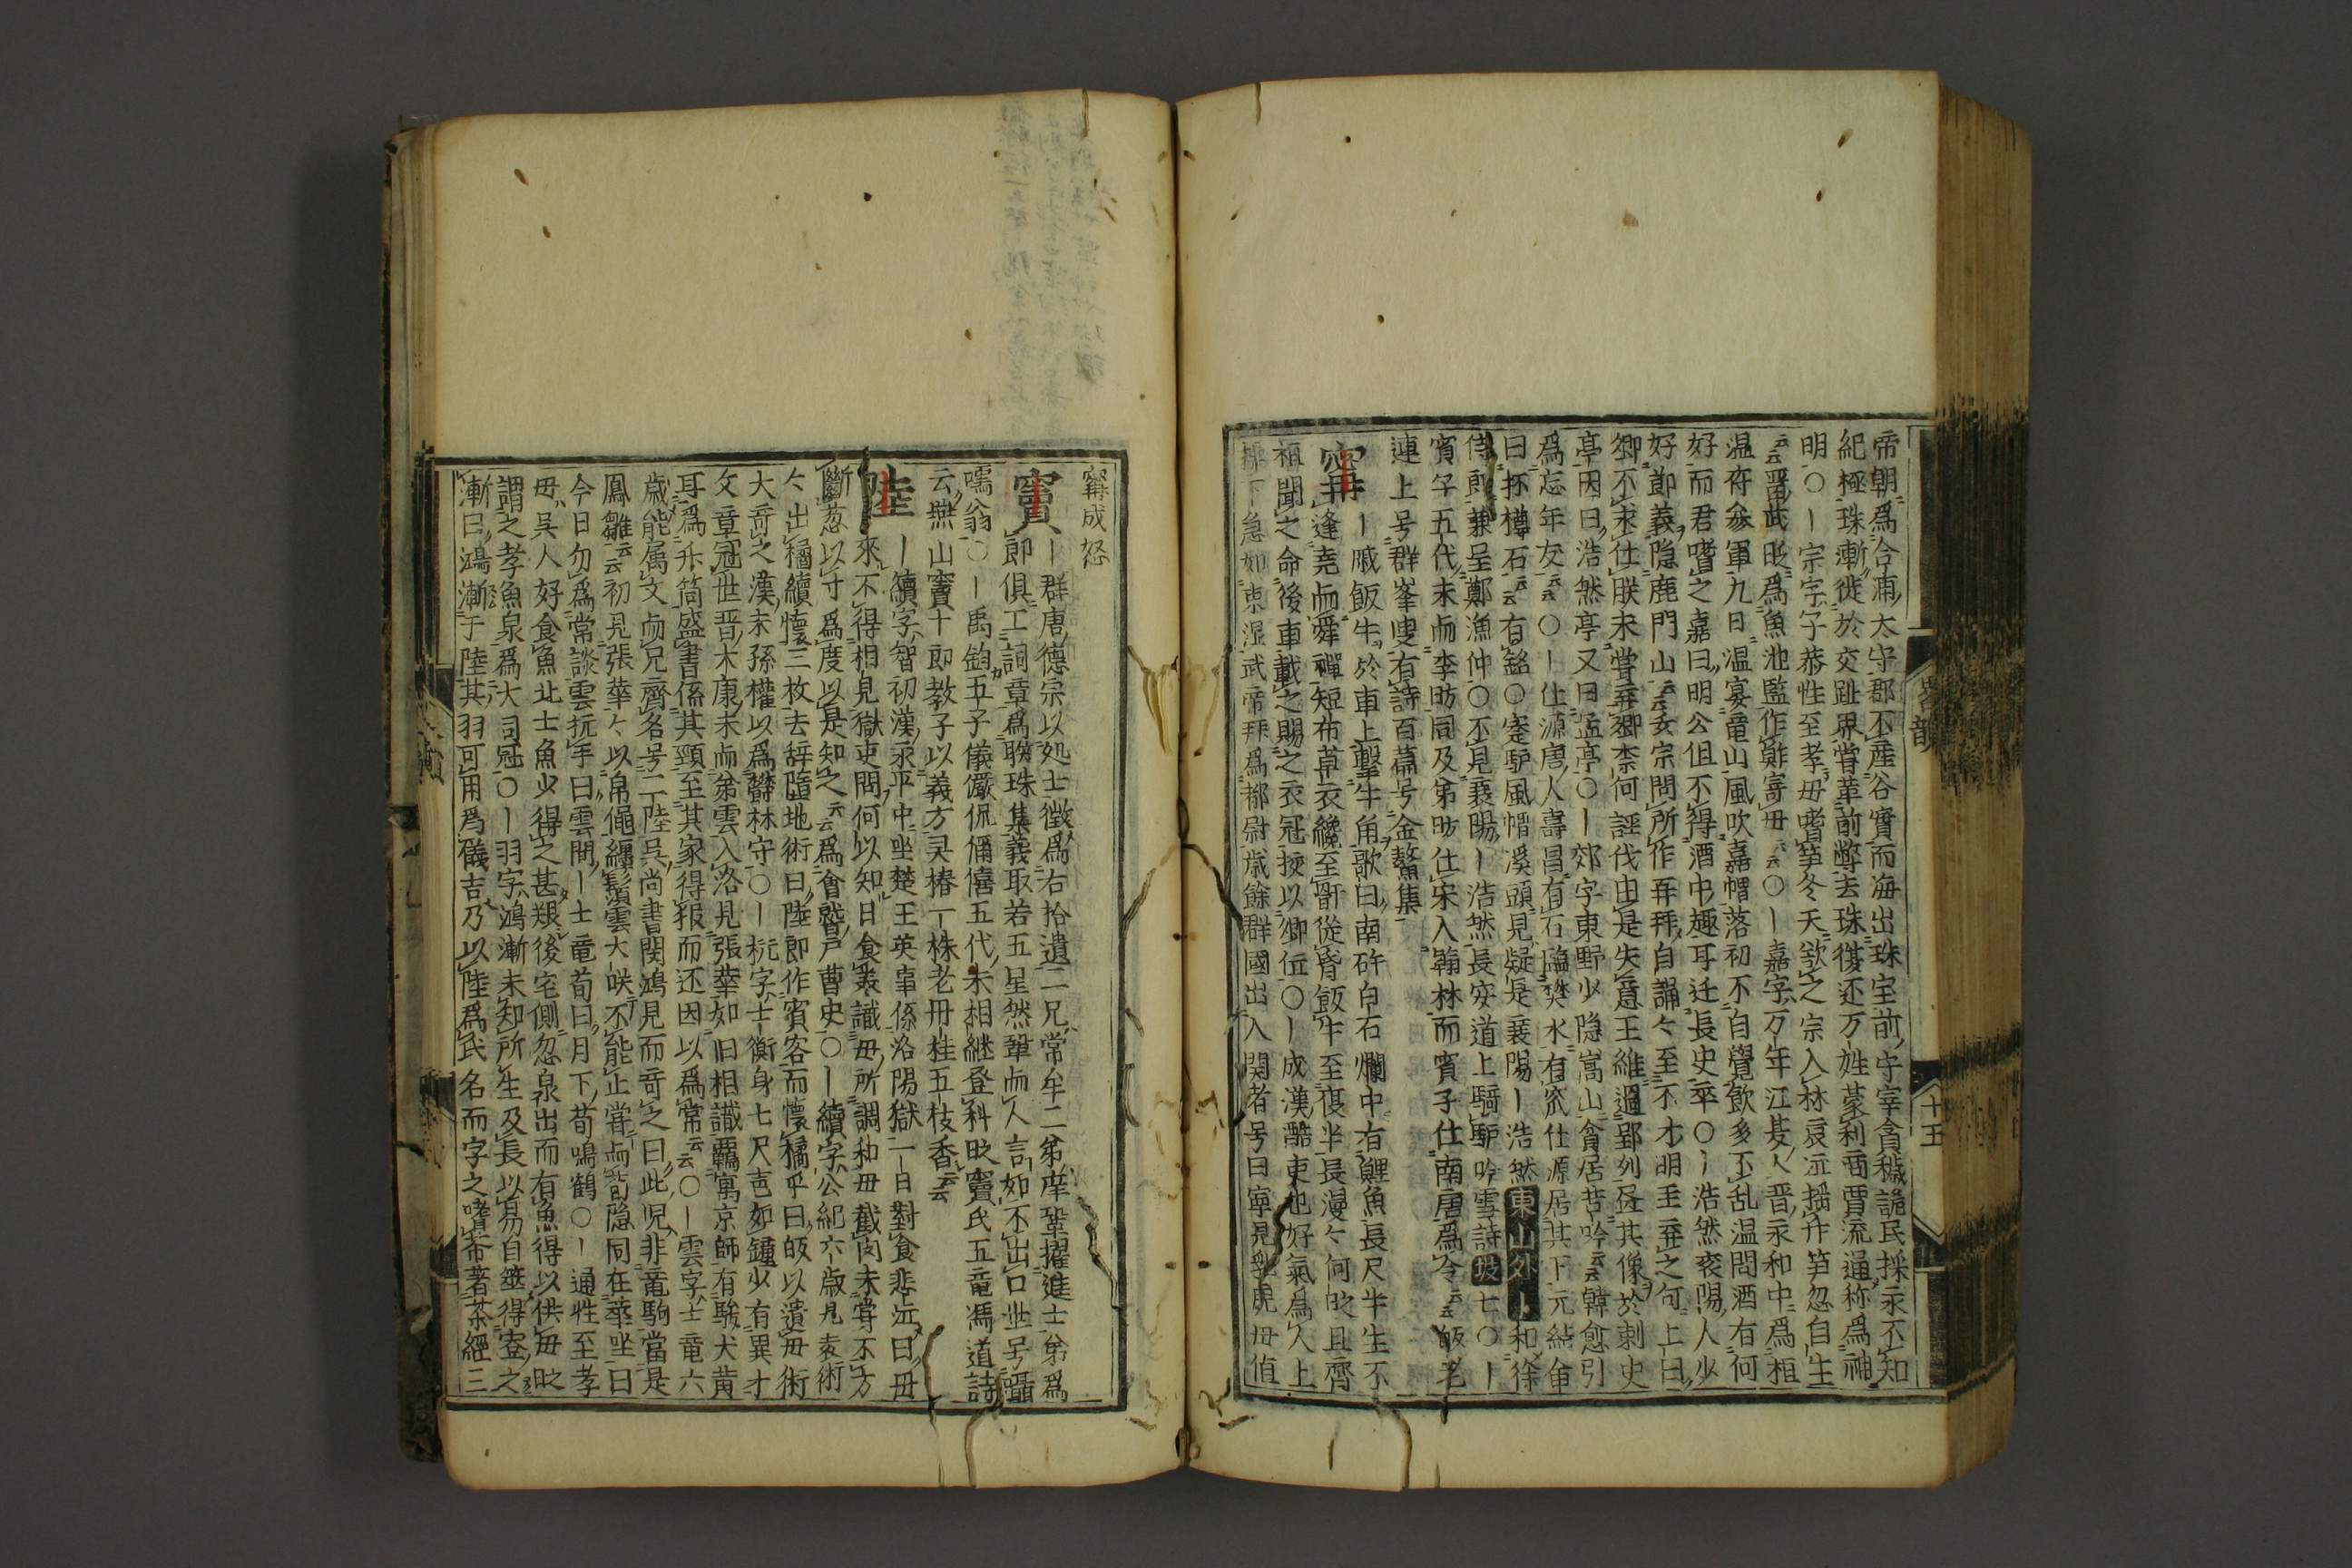 帝朝爲合浦大守郡不産谷實而海出珠宝前守宰貪穢詭民採求不知
紀極珠漸徙於交趾界嘗革前弊去珠復还万姓蒙利商賈流通称爲神
明〇｜宗字子恭性至孝毋嗜笋冬天欲之宗入林哀泣揺竹笋忽白生
云云晋此时爲魚池監作鮓寄毋云云〇｜嘉字万年江夏人晋永和中爲桓
温府叅軍九日温宴竜山風吹嘉帽落初不自覺飲多不乱温問酒有何
好而君嗜之嘉曰明公但不得酒中趣耳迁長史卒〇｜浩然㐮陽人少
好節義隐鹿門山云云玄宗問所作再拜自誦々至不才明主弃之句上曰
卿不求仕朕未嘗弃卿柰何誣伐由是失意王維過郢刋畵其像於刺史
亭因曰浩然亭又曰孟亭〇｜郊字東野少隐嵩山貪居苦吟云云韓愈引
爲忘年友云云〇｜仕源唐人壽昌有石臨樊水有窊仕源居其下元結
曰抔樽石云云有銘〇蹇馿風帽溪頭見疑是襄陽｜浩然東山外｜和徐
侍郎兼呈鄭漁仲〇不見襄陽｜浩然長安道上騎馿吟雪詩坡七〇｜
賓字五代末而李昉同及第昉仕宋入翰林而賓子仕南唐爲令云云皈老
連上号群峯叟有詩百篇号金鰲集
甯｜戚飯牛於車上擊牛角歌曰南矸白石爛中有鯉魚長尺半生不
逢堯而舜禪短布草衣纔至骭從昏飯牛至夜半長漫々何时旦齊
桓聞之命後車載之賜之衣冠授以卿位〇｜成漢酷吏也好氣爲人上
操下急如束湿武帝拜爲都尉歳餘群國出入関者号曰寧見乳虎毋値
甯成怒
竇｜群唐德宗以処士徴爲右拾遺二兄常牟二弟庠鞏擢進士第爲
郎俱工詞章爲聯珠集義取若五星然鞏而人言如不出口世号囁
嚅翁〇｜禹鈞五子儀儼侃偁僖五代末相継登科时竇氏五竜馮道詩
云燕山竇十郎教子以義方灵椿一株老丹桂五枝香云云
陸｜續字智初漢永平中坐楚王英事係洛陽獄一日對食悲泣曰毋
來不得相見獄吏問何以知曰食羮識毋所調和毋截肉未嘗不方
斷葱以寸爲度以是知之云云爲會嵇戸曹史〇｜續字公紀六歳見袁術
々出橘續懷三枚去辞隨地術曰陸郎作賓客而懷橘乎曰皈以遺毋術
大奇之漢末孫權以爲欝林守〇｜杬字士衡身七尺吉如鐘少有異才
文章冠世晋木康末而弟雲入洛見張華如旧相識羈寓京師有駿犬黄
耳爲𠀋筒盛書係其頸至其家得报而还因以爲常云云〇｜雲字士竜六
歳能属文而兄齊名号二陸呉尚書関鴻見而奇之曰此児非竜駒當是
鳳雛云云初見張華々以帛縄纒鬚雲大咲不能止嘗而荀隐同在華坐曰
今日勿爲常談雲抗手曰雲間｜士竜荀曰月下荀鳴鶴〇｜通性至孝
毋呉人好食魚北士魚少得之甚艱後宅側忽泉出而有魚得以供毎时
謂之孝魚泉爲大司冠〇｜羽字鴻漸未知所生及長以易自筮得蹇之
漸曰鴻漸于陸其羽可用爲儀吉乃以陸爲氏名而字之嗜茶著茶經三
畧韻
十五